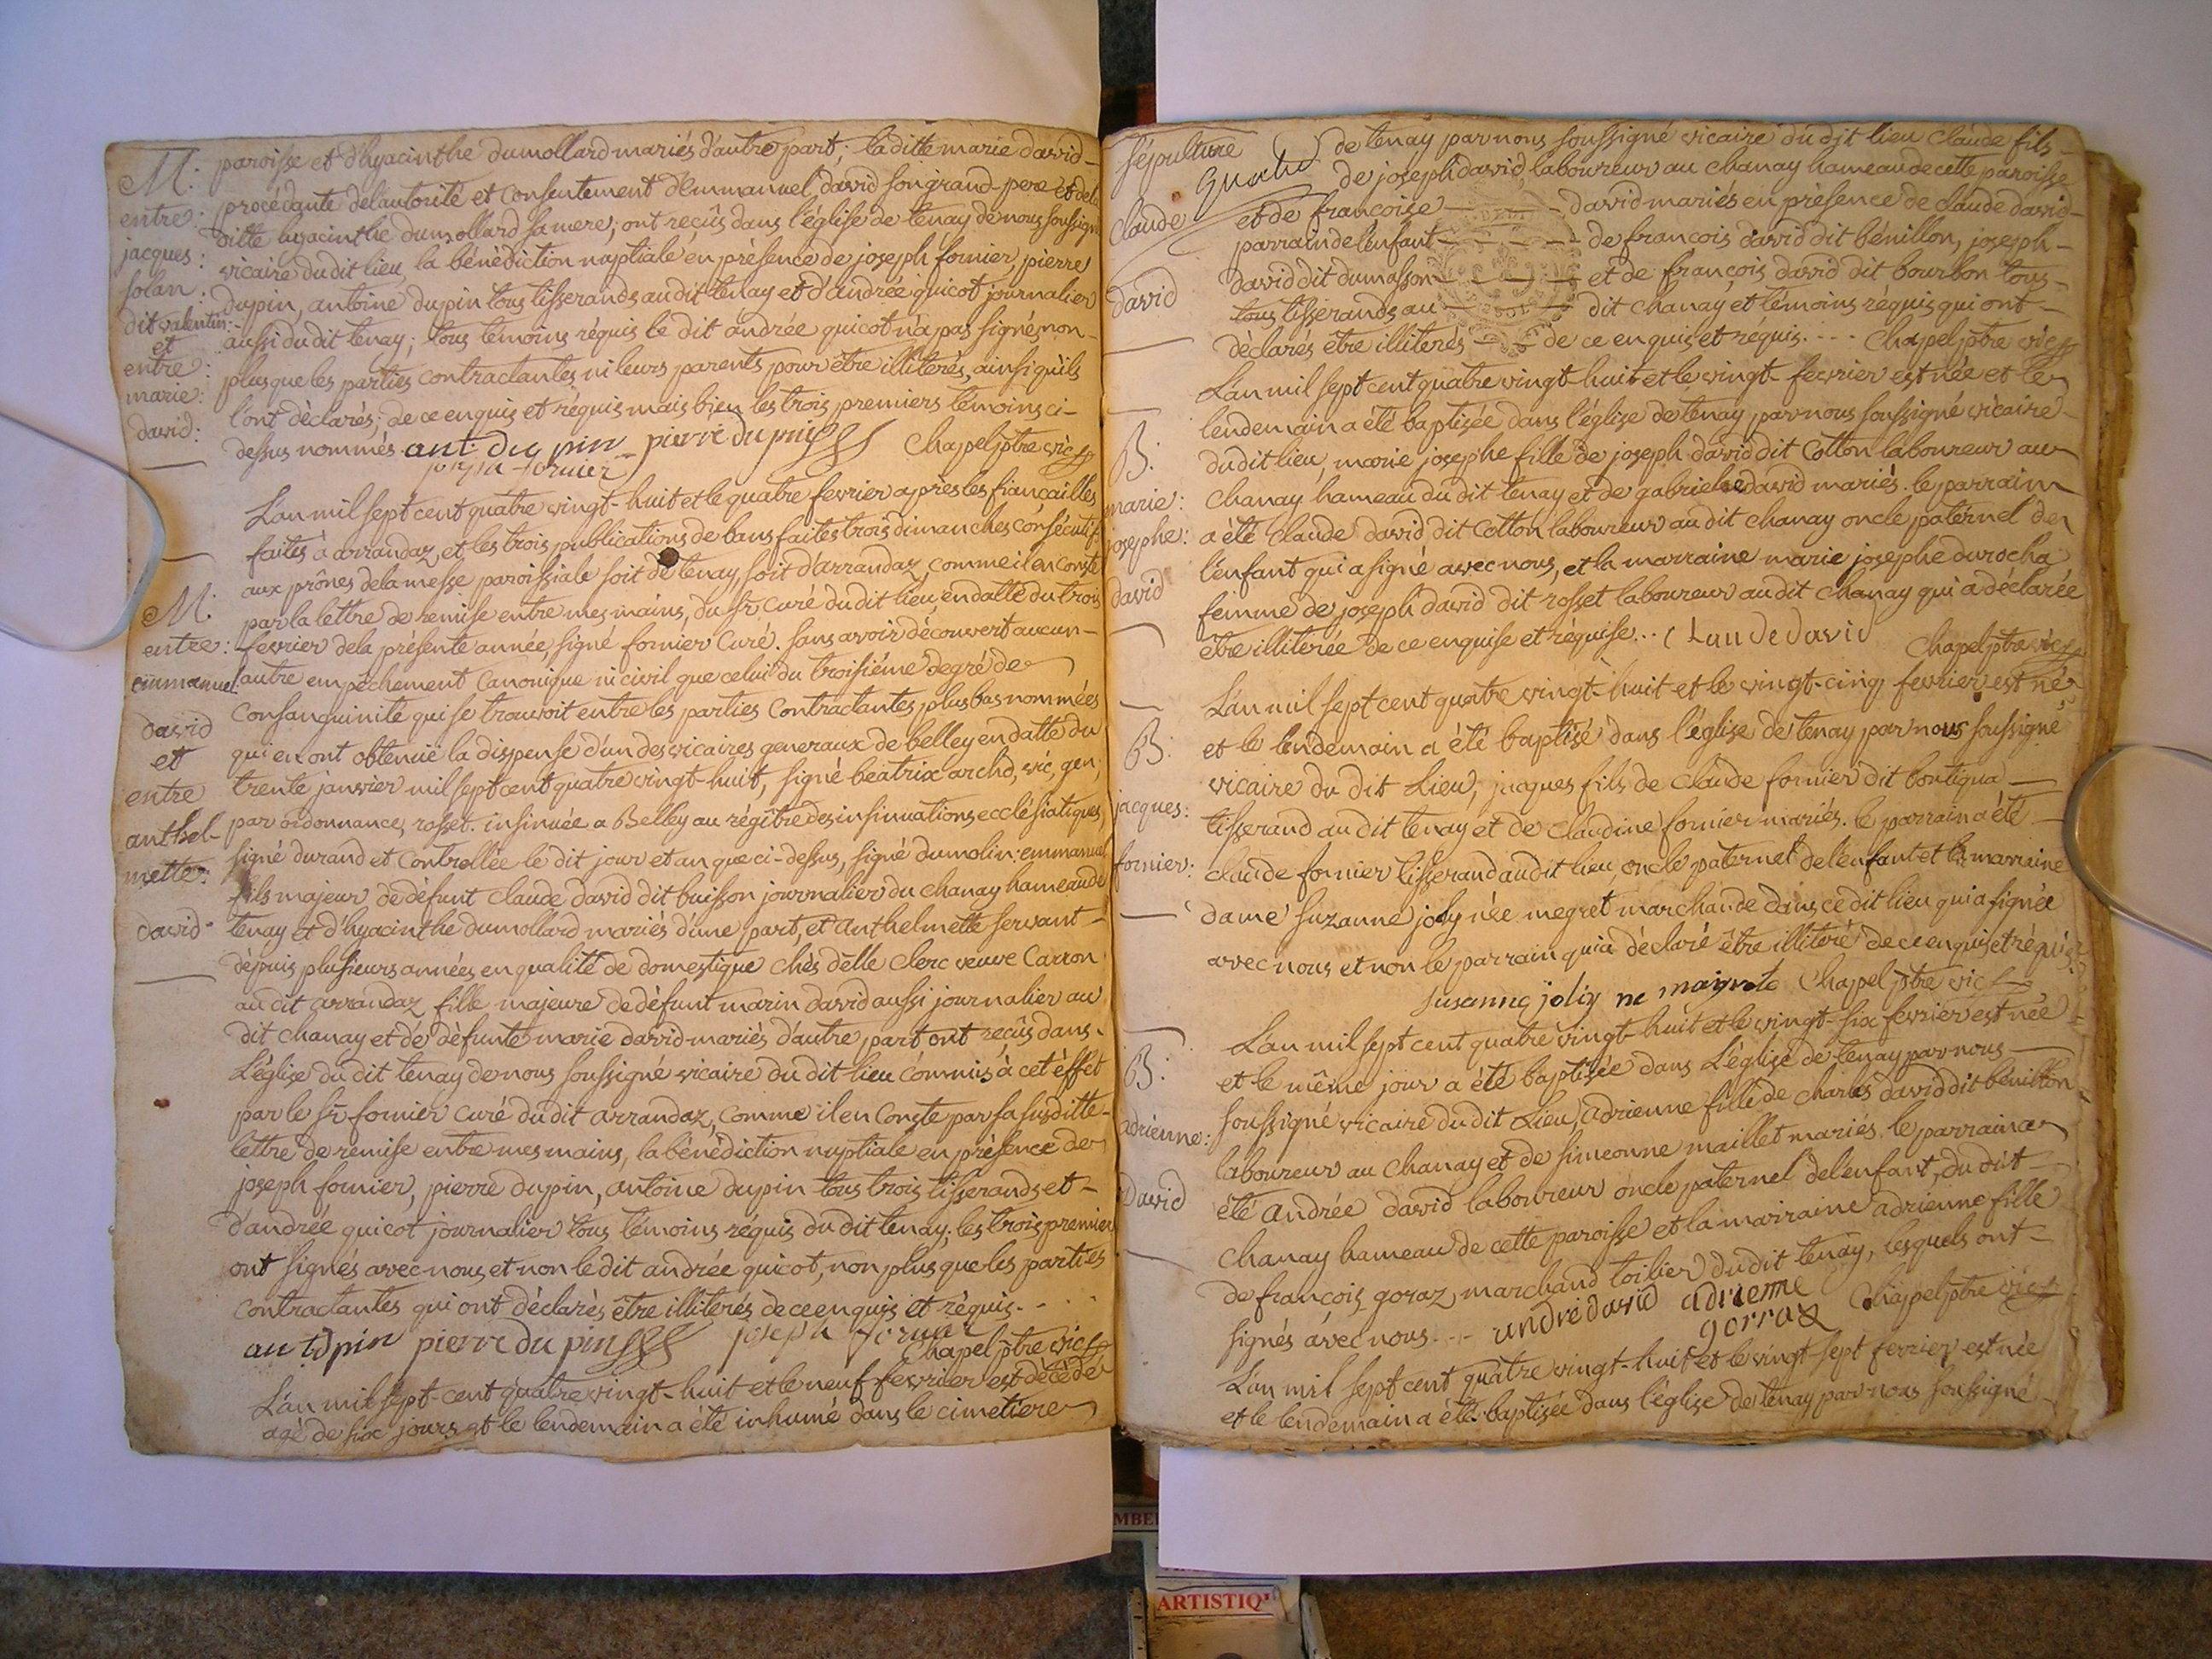 M: entre: jacques: solan: dit valentin: et entre: marie: david:
paroisse et d'hyacinthe dumollard mariés d'autre part; la ditte marie david
procédante de l'autorité et consentement d'emmanuel david son grand-pere et de la
ditte hyacinthe dumollard sa mere; ont reçûs dans l'église de tenay de nous soussigné
vicaire du dit lieu la bénédiction nuptiale en présence de joseph fornier, pierre
dupin, antoine dupin tous tisserands au dit tenay et d'andrée guicot journalier
aussi du dit tenay; tous témoins réquis le dit andrée guicot n'a pas signé non
plus que les parties contractantes ni leurs parents pour être illiterés, ainsi qu'ils
l'ont déclarés; de ce enquis et réquis mais bien les trois premiers témoins ci-
dessus nommés ant. du pin pierre du pin Chapel ptre vic
joseph fornier
M: entre: emmanuel: david et entre anthel-mette: david
L'an mil sept cent quatre vingt-huit et le quatre fevrier après les fiançailles
faites à arrandaz, et les trois publications de bans faites trois dimanches consécutifs
aux prônes de la messe paroissiale soit de tenay, soit d'arrandaz, comme il en conste
par la lettre de remise entre mes mains, du sr. curé du dit lieu, en datte du trois
fevrier de la présente année, signé fornier Curé. sans avoir découvert aucun
autre empêchement Canonique ni civil que celui du troisiéme degré de
consanguinité qui se trouvoit entre les parties contractantes, plus bas nommées
qui en ont obtenuë la dispense d'un des vicaires generaux de belley en datte du
trente janvier mil sept cent quatre vingt-huit, signé béatrix archd, vic, gen,
par ordonnance, rosset. insinuée a Belley au régitre des insinuations ecclésiatiques,
signé durand et Controllée le dit jour et an que ci-dessus, signé dumolin: emmanuel
fils majeur de défunt claude david dit buisson journalier du chanay hameau de
tenay et d'hyacinthe dumollard mariés d'une part, et anthelmette servant
dépuis plusieurs années en qualité de domestique chés delle clerc veuve Carron
au dit arrandaz fille majeure de défunt marin david aussi journalier au
dit chanay et de défunte marie david mariés d'autre part ont reçûs dans
L'église du dit tenay de nous soussigné vicaire du dit lieu commis à cet éffet
par le sr. fornier curé du dit arrandaz, comme il en conste par sa susditte
lettre de remise entre mes mains, la bénédiction nuptiale en présence de
joseph fornier, pierre dupin, antoine dupin tous trois tisserands et
d'andrée guicot journalier tous témoins réquis du dit tenay; les trois premiers
ont signés avec nous et non le dit andrée guicot, non plus que les parties
contractantes qui ont déclarés être illiterés de ce enquis et réquis.
ant dpin pierre du pin joseph fornier
Chapel ptre vic
L'an mil sept-cent quatre vingt-huit et le neuf fevrier est décédé
agé de six jours et le lendemain a été inhumé dans le cimetiere
sépulture claude david
de tenay par nous soussigné vicaire du dit lieu claude fils
de joseph david, laboureur au chanay hameau de cette paroisse
et de françoise david mariés en présence de claude david
parrain de l'enfant de francois david dit bénillon, joseph
david dit dumasson et de françois david dit bourbon tous
tous tisserands au dit chanay et témoins réquis qui ont
déclarés être illiterés de ce enquis et réquis. Chapel ptre vic
B: marie: josephe: david
L'an mil sept cent quatre vingt-huit et le vingt-fevrier est née et le
lendemain a été baptisée dans l'église de tenay, par nous soussigné vicaire
du dit lieu, marie josephe fille de joseph david dit Cotton laboureur au
chanay hameau du dit tenay et de gabrielle david mariés. le parrain
a été claude david dit Cotton laboureur au dit chanay oncle patérnel de
l'enfant qui a signé avec nous, et la marraine marie josephe durocha
femme de joseph david dit rosset laboureur au dit chanay qui a déclarée
être illiterée de ce enquise et réquise... Claude david Chapel ptre vic
B: jacques: fornier:
L'an mil sept cent quatre vingt-huit et le vingt-cinq fevrier est né
et le lendemain a été baptisé dans l'église de tenay par nous soussigné
vicaire du dit Lieu, jacques fils de claude fornier dit boutiqua
tisserand au dit tenay et de claudine fornier mariés. le parrain a été
claude fornier tisserand au dit lieu, oncle paternel de l'enfant et la marraine
dame suzanne joly née megret marchande dans ce dit lieu qui a signée
avec nous et non le parrain qui a déclaré être illiteré de ce enquis et réquis
susanne jolÿ ne maigrete Chapel ptre vic
B: adrienne: David
L'an mil sept cent quatre vingt-huit et le vingt-six fevrier est née
et le même jour a été baptisée dans L'église de tenay par nous
soussigné vicaire du dit Lieu, adrienne fille de charles david dit bénillon
laboureur au chanay et de simeonne maillet mariés. le parrain a
été andrée david laboureur oncle paternel de l'enfant, du dit
chanay hameau de cette paroisse et la marraine adrienne fille
de françois goraz marchand toilier du dit tenay, lesquels ont
signés avec nous. andré david adrienne gorraz Chapel ptre vic
L'an mil sept cent quatre vingt-huit et le vingt sept fevrier est née
et le lendemain a été baptisée dans l'église de tenay par nous soussigné
ARTISTIQ